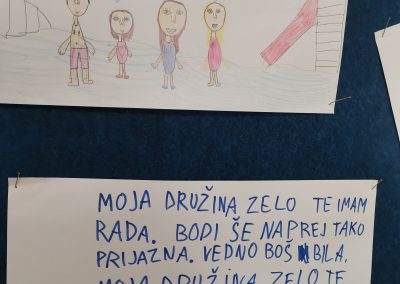 MOJA DRUŽINA ZELO TE IMAM
RADA. BODI ŠE NAPREJ TAKO
PRIJAZNA. VEDNO BOŠ BILA,
MOJA DRUŽINA ZELO TE